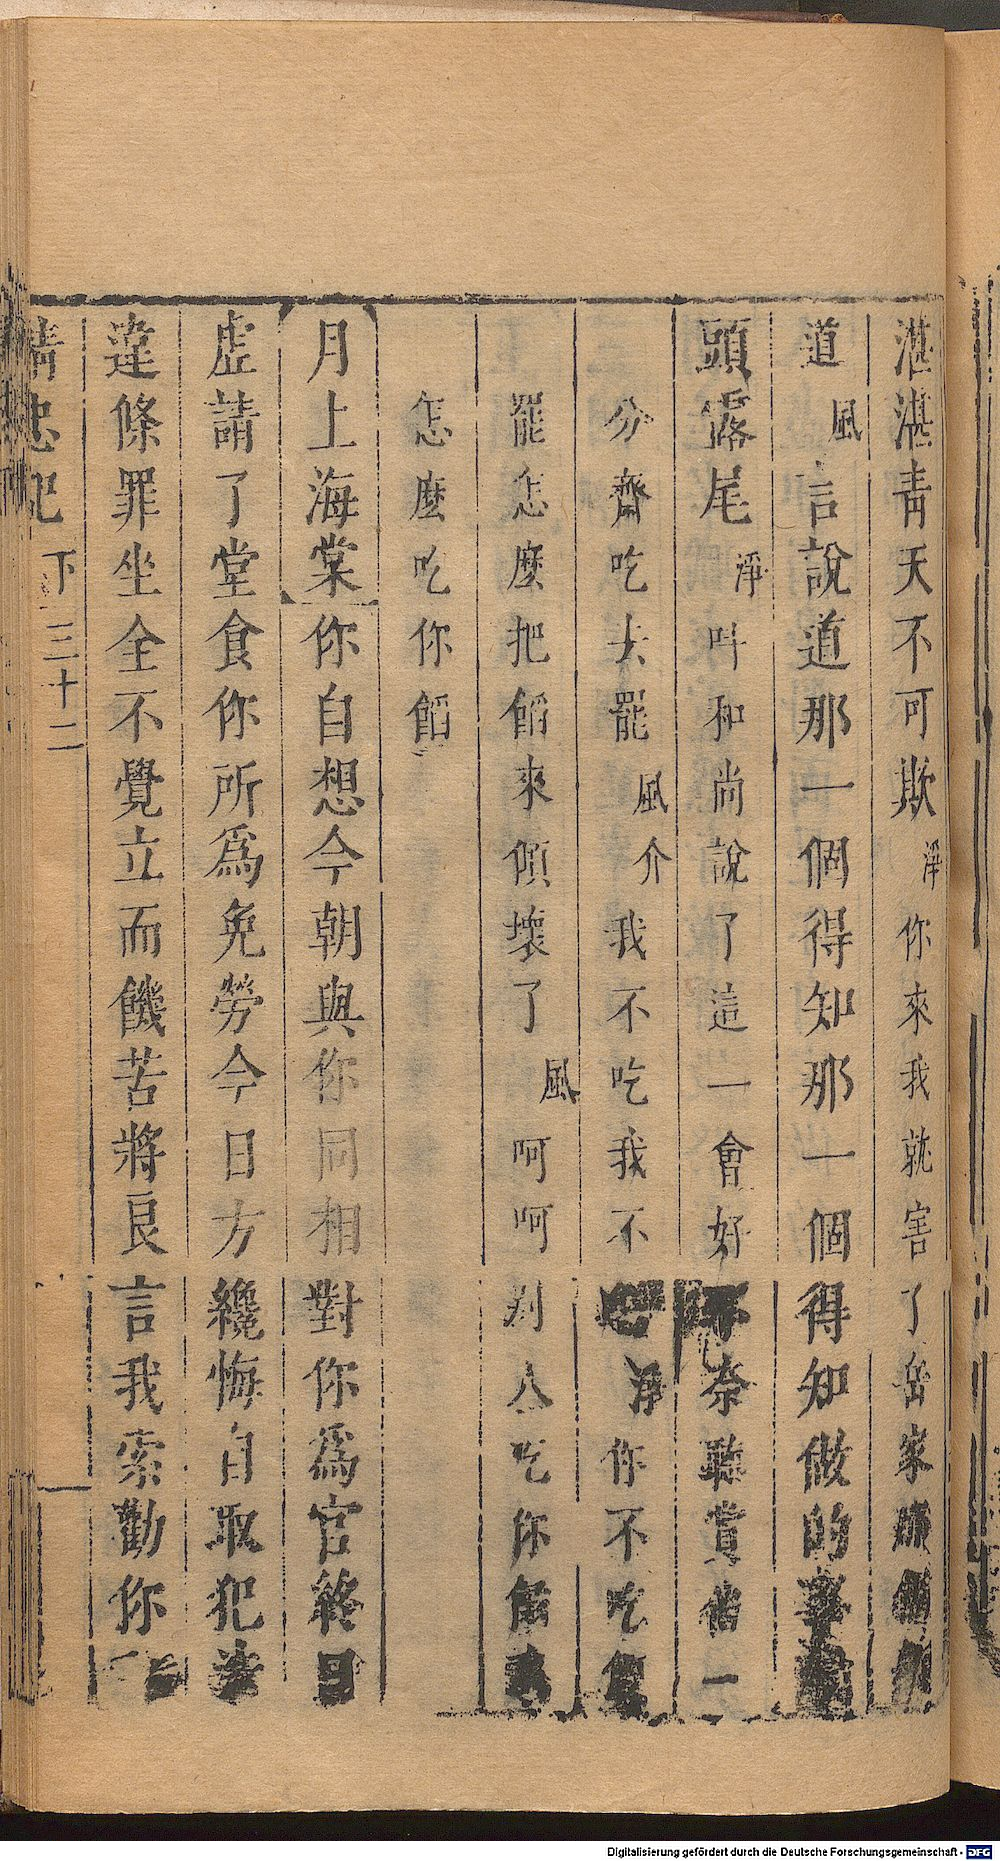 湛湛青天不可欺淨你來我就害了岳家
道風言說道那一個得知那一個得知做的事
頭露尾淨叫和尚說了這一會好不奈聽賞你一
分齋吃去罷風介我不吃我不吃淨你不吃
罷怎麼把餡來傾壞了風呵呵别人吃你餡
怎麼吃你餡
月上海棠你自想今朝與你同相對你爲官終日
虛請了堂食你所爲免勞今日方纔悔自取犯法
違條罪坐全不覺立而饑苦將良言我索勸你
精忠記 下 三十二
Digitalisierung gefördert durch die Deutsche Forschungsgemeinschaft - DFG